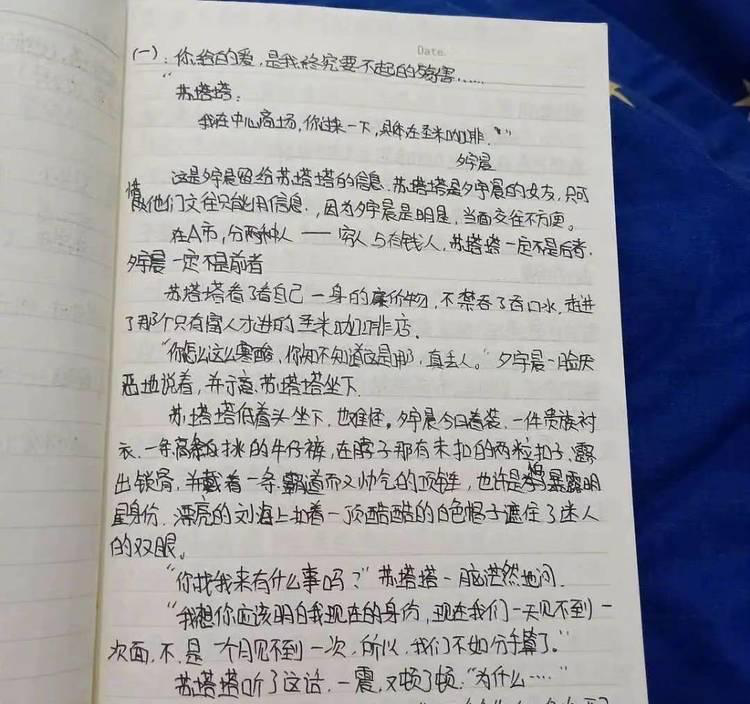 Date.
(一):你给的爱,是我终究要不起的伤害……
"苏塔塔:
我在中心商场,你过来一下,具体在圣米咖啡."
夕宇晨
这是夕宇晨留给苏塔塔的信息.苏塔塔是夕宇晨的女友,只可
惜他们交往只能用信息.,因为夕宇晨是明星,当面交往不方便。
在A市,分两种人——穷人与有钱人,苏塔塔一定不是后者,
夕宇晨一定不是前者
苏塔塔看了看自己一身的廉价物,不禁吞了吞口水,走进
了那个只有富人才进的圣米咖啡店.
"你怎么这么寒酸,你知不知道这是那,真丢人。"夕宇晨一脸厌
恶地说着,并示意苏塔塔坐下.
苏塔塔低着头坐下.也难怪。夕宇晨今日着装、一件贵族衬
衣、一条高挑的牛仔裤,在脖子那有未扣的两粒扣子、露
出锁骨,并戴着一条霸道而又帅气的项链,也许是怕暴露明
星身份.漂亮的刘海上扣着一顶酷酷的白色帽子遮住了迷人
的双眼。
"你找我来有什么事吗?"苏塔塔一脑茫然地问.
"我想你应该明白我现在的身份,现在我们一天见不到一
次面.不.是一个月见不到一次.所以,我们不如分手算了。"
苏塔塔听了这话.一震,又顿了顿:"为什么……"